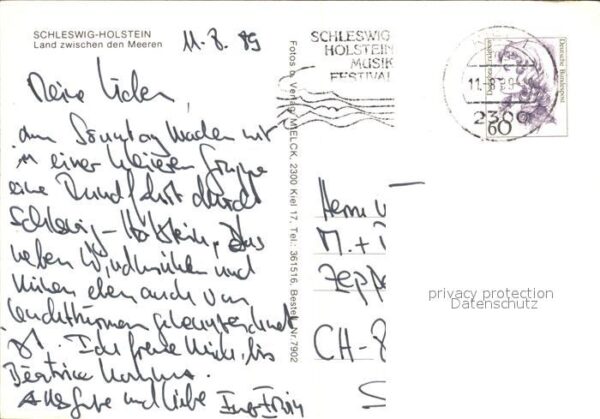 SCHLESWIG-HOLSTEIN
Land zwischen den Meeren
11.8.89
Meine Lieben,
am Sonntag machen wir
in einer kleinen Gruppe
eine Rundfahrt durch
Schleswig-Holstein, das
neben Windmühlen und
Kühen eben auch von
Leuchttürmen gekennzeichnet
ist. Ich freue mich, bis
Béatrice kommt.
Alles Gute und Liebe
Fotos u. Verlag MIELCK, 2300 Kiel 17, Tel.: 361516, Bestell-Nr. 7902
SCHLESWIG
HOLSTEIN
MUSIK
FESTIVAL
11.-8.89
2300
Deutsche Bundespost
60
Herrn
M. +
Zepp
CH-8
privacy protection
Datenschutz